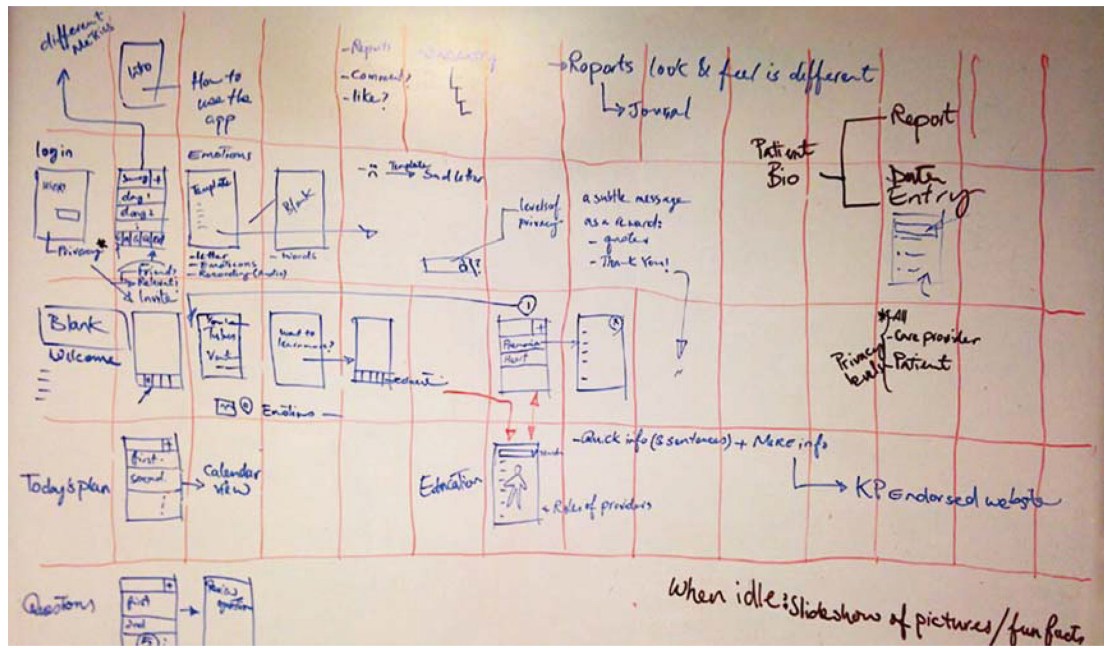 different
Metrics
Intro
How to
use the
app
- Reports
- Comment?
- like?
→ Reports look & feel is different
Journal
Patient
Bio
Report
Data
Entry
login
Privacy *
+
day 1
day 2
Friends
Invite
Emotions
Template
- letter
- Emoticons
- Recording (Audio)
Blank
- words
Template
Send letter
levels of
privacy
a subtle message
as a reward:
- quotes
- Thank You!
Blank
Welcome
want to
learn more?
Emotions
1
+
Heart
* All
- Care provider
- Patient
Privacy
levels
Today's plan
+
first
second
Calendar
view
Education
- Quick info (3 sentences) + More info
Roles of providers
KP Endorsed website
Questions
+
first
2nd
5
Review
question
When idle: Slideshow of pictures/fun facts